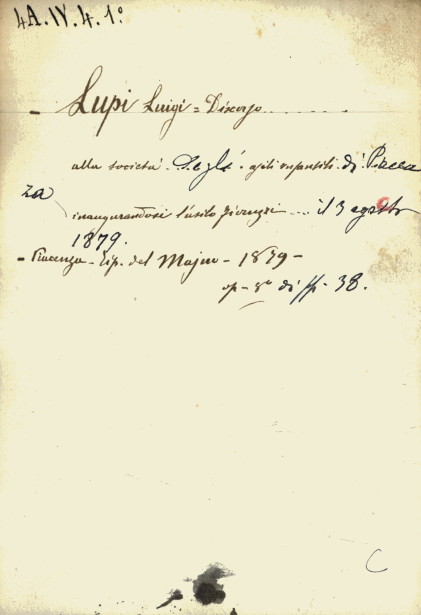 4A. IV. 4. 1º
Lupi Luigi = Discorso
alla società degli asili infantili di Piacen
za
inaugurandosi l'asilo ... il 3 agosto
1879.
- Piacenza - Tip. del Majno - 1879 -
op - 8º di pp. 38.
C